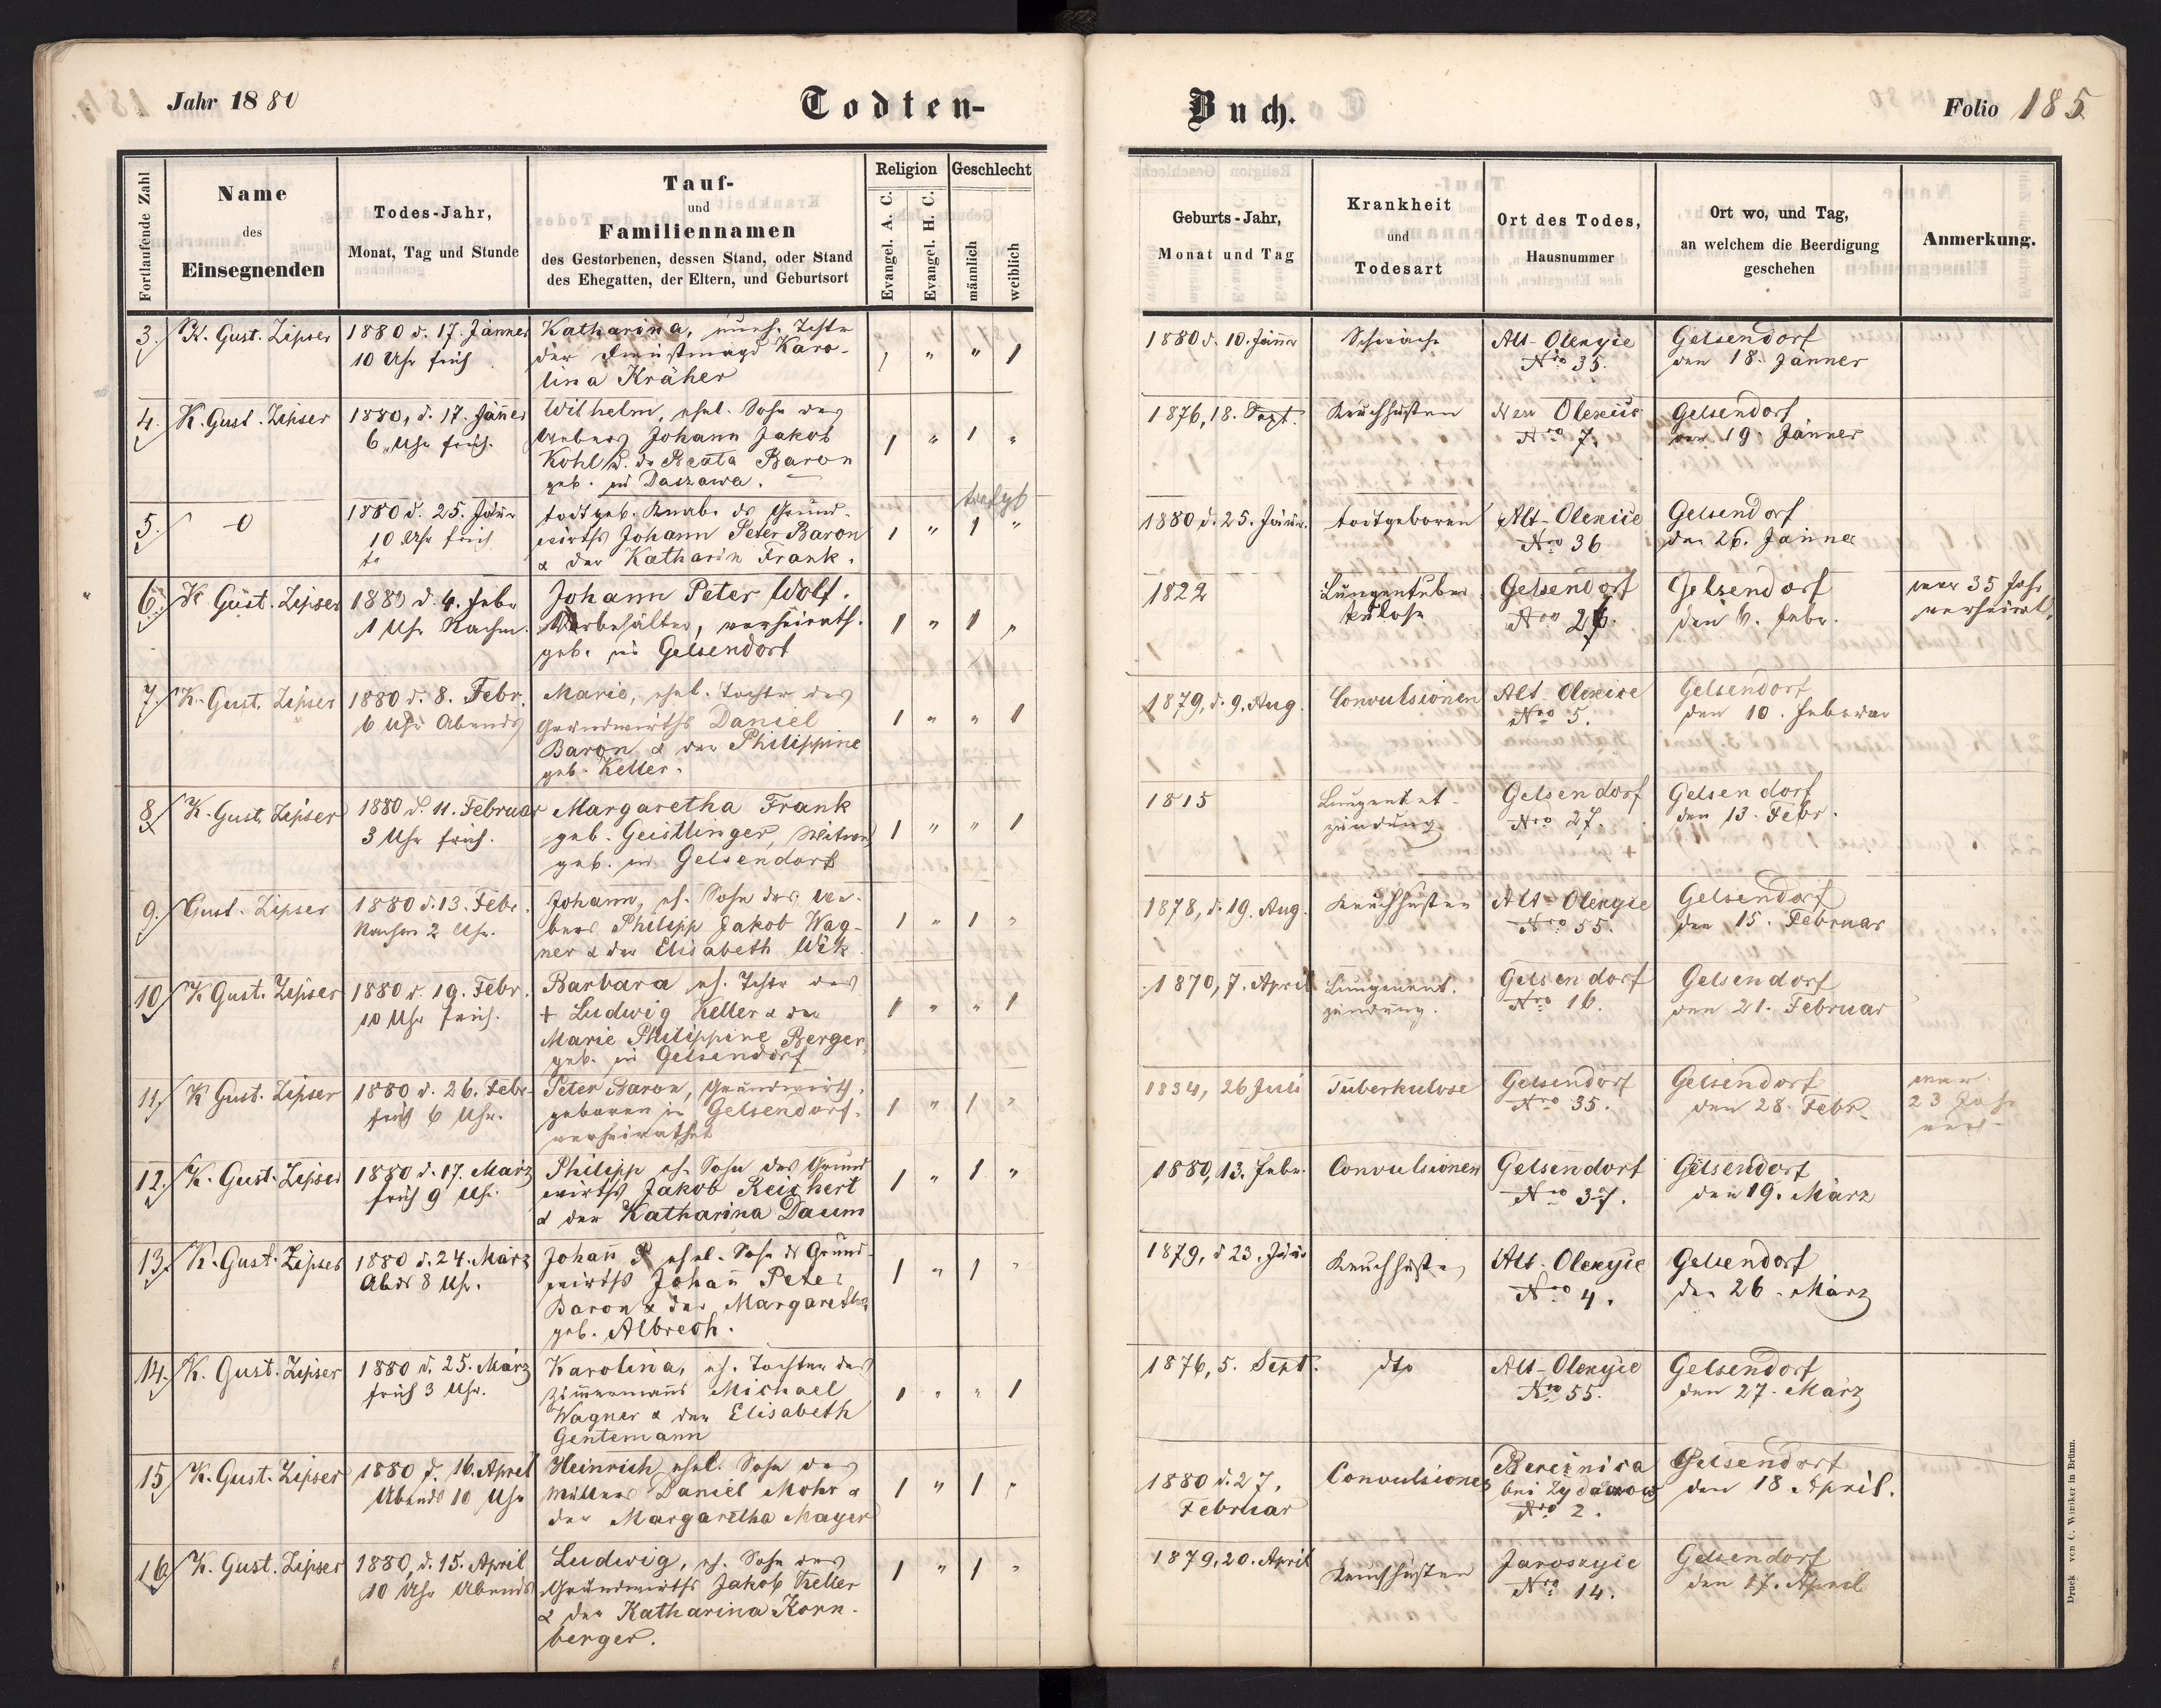 Jahr 1880
Todten-
Buch.
Folio 185
Fortlaufende Zahl
Name
des
Einsegnenden
Todes-Jahr,
Monat, Tag und Stunde
Tauf-
und
Familiennamen
des Gestorbenen, dessen Stand, oder Stand
des Ehegatten, der Eltern, und Geburtsort
Religion
Evangel. A. C.
Evangel. H. C.
Geschlecht
männlich
weiblich
Geburts-Jahr,
Monat und Tag
Krankheit
und
Todesart
Ort des Todes,
Hausnummer
Ort wo, und Tag,
an welchem die Beerdigung
geschehen
Anmerkung.
3. K. Gust. Zipser 1880 d. 17. Jänner Katharina, uneh. Tocht. 1880 d. 10. Jänner Schwäche Alt-Olexyie Gelsendorf
10 Uhr früh der Dienstmagd Karo- 1 " " 1 Nro 35. den 18. Jänner
lina Kräher
4. K. Gust. Zipser 1880, d. 17. Jäner Wilhelm, ehel. Sohn des 1876, 18. Sept. Keuchhusten Neu Olexiie Gelsendorf
6 Uhr früh. Webers Johann Jakob 1 " 1 " Nro 7. den 19. Jänner
Kohl u. d. Beata Baron
geb. in Daszawa.
5. 0 1880 d. 25. Jänn todtgeb. Knabe ds Grund- 1880 d. 25. Jänn. todtgeboren Alt-Olexiie Gelsendorf
10 Uhr früh wirths Johann Peter Baron 1 " 1 " Nro 36 den 26. Jänner
& der Katharin Frank.
6. K Gust. Zipser 1880 d. 4. Febr Johann Peter Wolf. 1822 Lungentuber Gelsendorf Gelsendorf war 35 Jahr
1 Uhr Nachm. Vorbehälter, verheirath. 1 " 1 " kulose Nro 26. den 6. Febr. verheirat.
geb. in Gelsendorf
7. K. Gust. Zipser 1880 d. 8. Febr. Marie, ehel. Tochter des 1879, d. 9. Aug. Convulsionen Alt-Olexise Gelsendorf
6 Uhr Abends Grundwirths Daniel 1 " " 1 Nro 5. den 10. Februar
Baron & der Philippine
geb. Keller.
8. K. Gust. Zipser 1880 d. 11. Februar Margaretha Frank 1815 Lungenent- Gelsendorf Gelsendorf
3 Uhr früh. geb. Geistlinger, Witwe 1 " " 1 zündung Nro 27. den 13. Febr.
geb. in Gelsendorf
9. Gust. Zipser 1880 d. 13. Febr. Johann, eh. Sohn des We- 1878, d. 19. Aug. Keuchhusten Alt-Olexyie Gelsendorf
Nachm 2 Uhr. bers Philipp Jakob Wag- 1 " 1 " Nro 55. den 15. Februar
ner & der Elisabeth Wek
10 K Gust. Zipser 1880 d. 19. Febr. Barbara eh. Tocht des 1870, 7. April Lungenent. Gelsendorf Gelsendorf
10 Uhr früh. + Ludwig Keller & der 1 " " 1 zündung. Nro 16. den 21. Februar
Marie Philippine Berger,
geb. in Gelsendorf
11. K Gust. Zipser 1880 d. 26. Febr. Peter Baron, Grundwirth, 1834, 26 Juli Tuberkulose Gelsendorf Gelsendorf war
früh 6 Uhr. geboren in Gelsendorf. 1 " 1 " Nro 35. den 28. Febr. 23 Jahr
verheirathet
12. K. Gust. Zipser 1880 d. 17. März Philipp eh. Sohn des Grund 1880, 13. Febr. Convulsionen Gelsendorf Gelsendorf
früh 9 Uhr. wirths Jakob Reichert 1 " 1 " Nro 37. den 19. März
& der Katharina Daum
13. K. Gust. Zipser 1880 d. 24. März Johañ ehel. Sohn ds Grund- 1879, d 23. Jän Keuchhusten Alt-Olexyie Gelsendorf
Abds 8 Uhr. wirths Johañ Peter 1 " 1 " Nro 4. den 26. März
Baron & der Margaretha
geb. Albrech.
14. K. Gust. Zipser 1880 d. 25. März Karolina, eh. Tochter des 1876, 5. Sept. dto Alt-Olexyie Gelsendorf
früh 3 Uhr. Zimmermanns Michael 1 " " 1 Nro 55. den 27. März
Wagner & der Elisabeth
Gentemann
15 K. Gust. Zipser 1880 d. 16. April Heinrich ehel. Sohn des 1880 d. 27. Convulsionen Bereźnica Gelsendorf
Abends 10 Uhr Müllers Daniel Mohr & 1 " 1 " Februar bei Zydaczow den 18 April.
der Margaretha Mayer Nro 2.
16. K. Gust. Zipser 1880, d. 15. April Ludwig, eh. Sohn des 1879, 20. April Keuchhusten Jaroszyie Gelsendorf
10 Uhr Abends Grundwirths Jakob Keller 1 " 1 " Nro 14. den 17. April
& der Katharina Korn-
berger.
Druck von C. Winiker in Brünn.